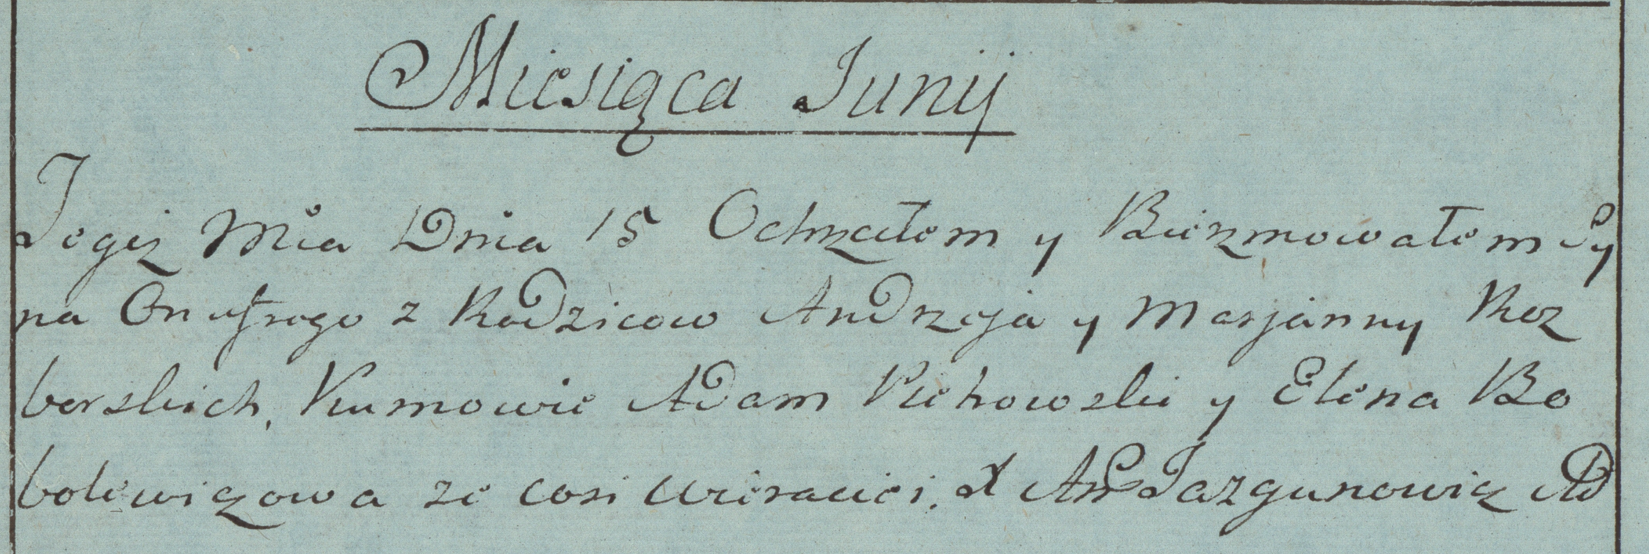 Miesiąca Junij
Tegiz Mca Dnia 15 Ochrzciłem y Bierzmowałem Sy
na Onufrego z Rodzicow Andrzeja y Marjanny Roz
berskich, Kumowie Adam Piehowski y Elena Bo
bolewiczowa ze wsi X Jazgunowicz